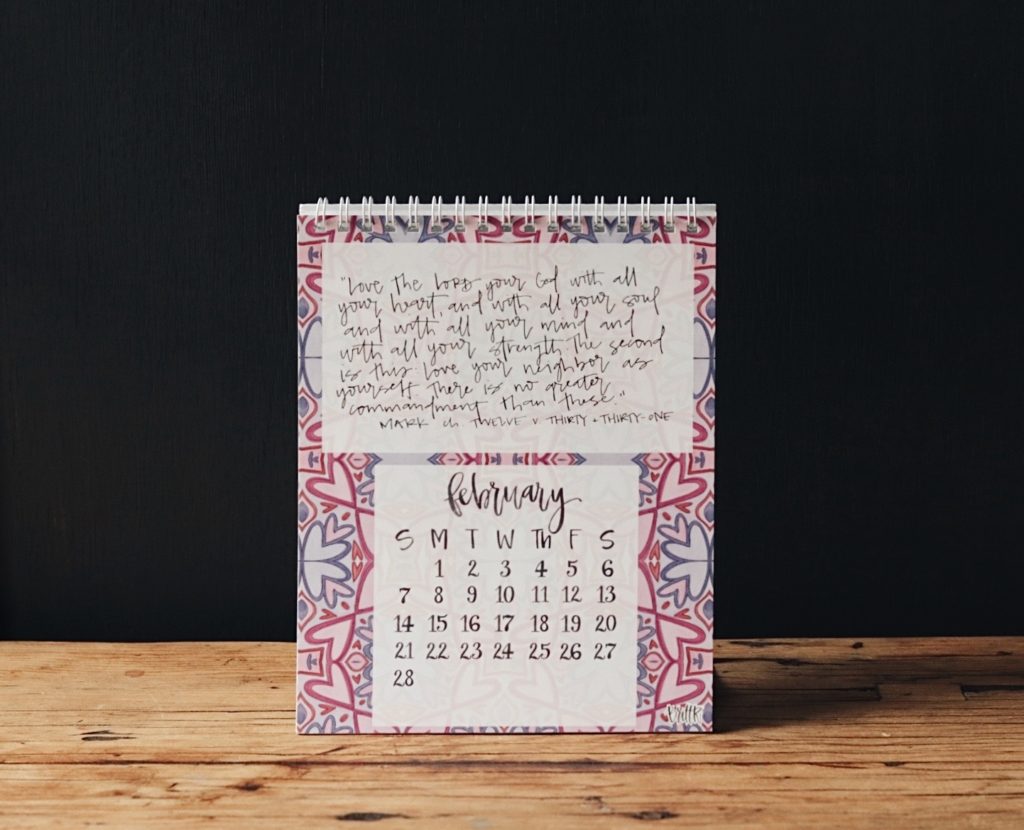 "Love the LORD your God with all
your heart, and with all your soul
and with all your mind and
with all your strength. The second
is this: Love your neighbor as
yourself. There is no greater
commandment than these."
MARK Ch. TWELVE v. THIRTY + THIRTY-ONE
february
S M T W Th F S
1 2 3 4 5 6
7 8 9 10 11 12 13
14 15 16 17 18 19 20
21 22 23 24 25 26 27
28